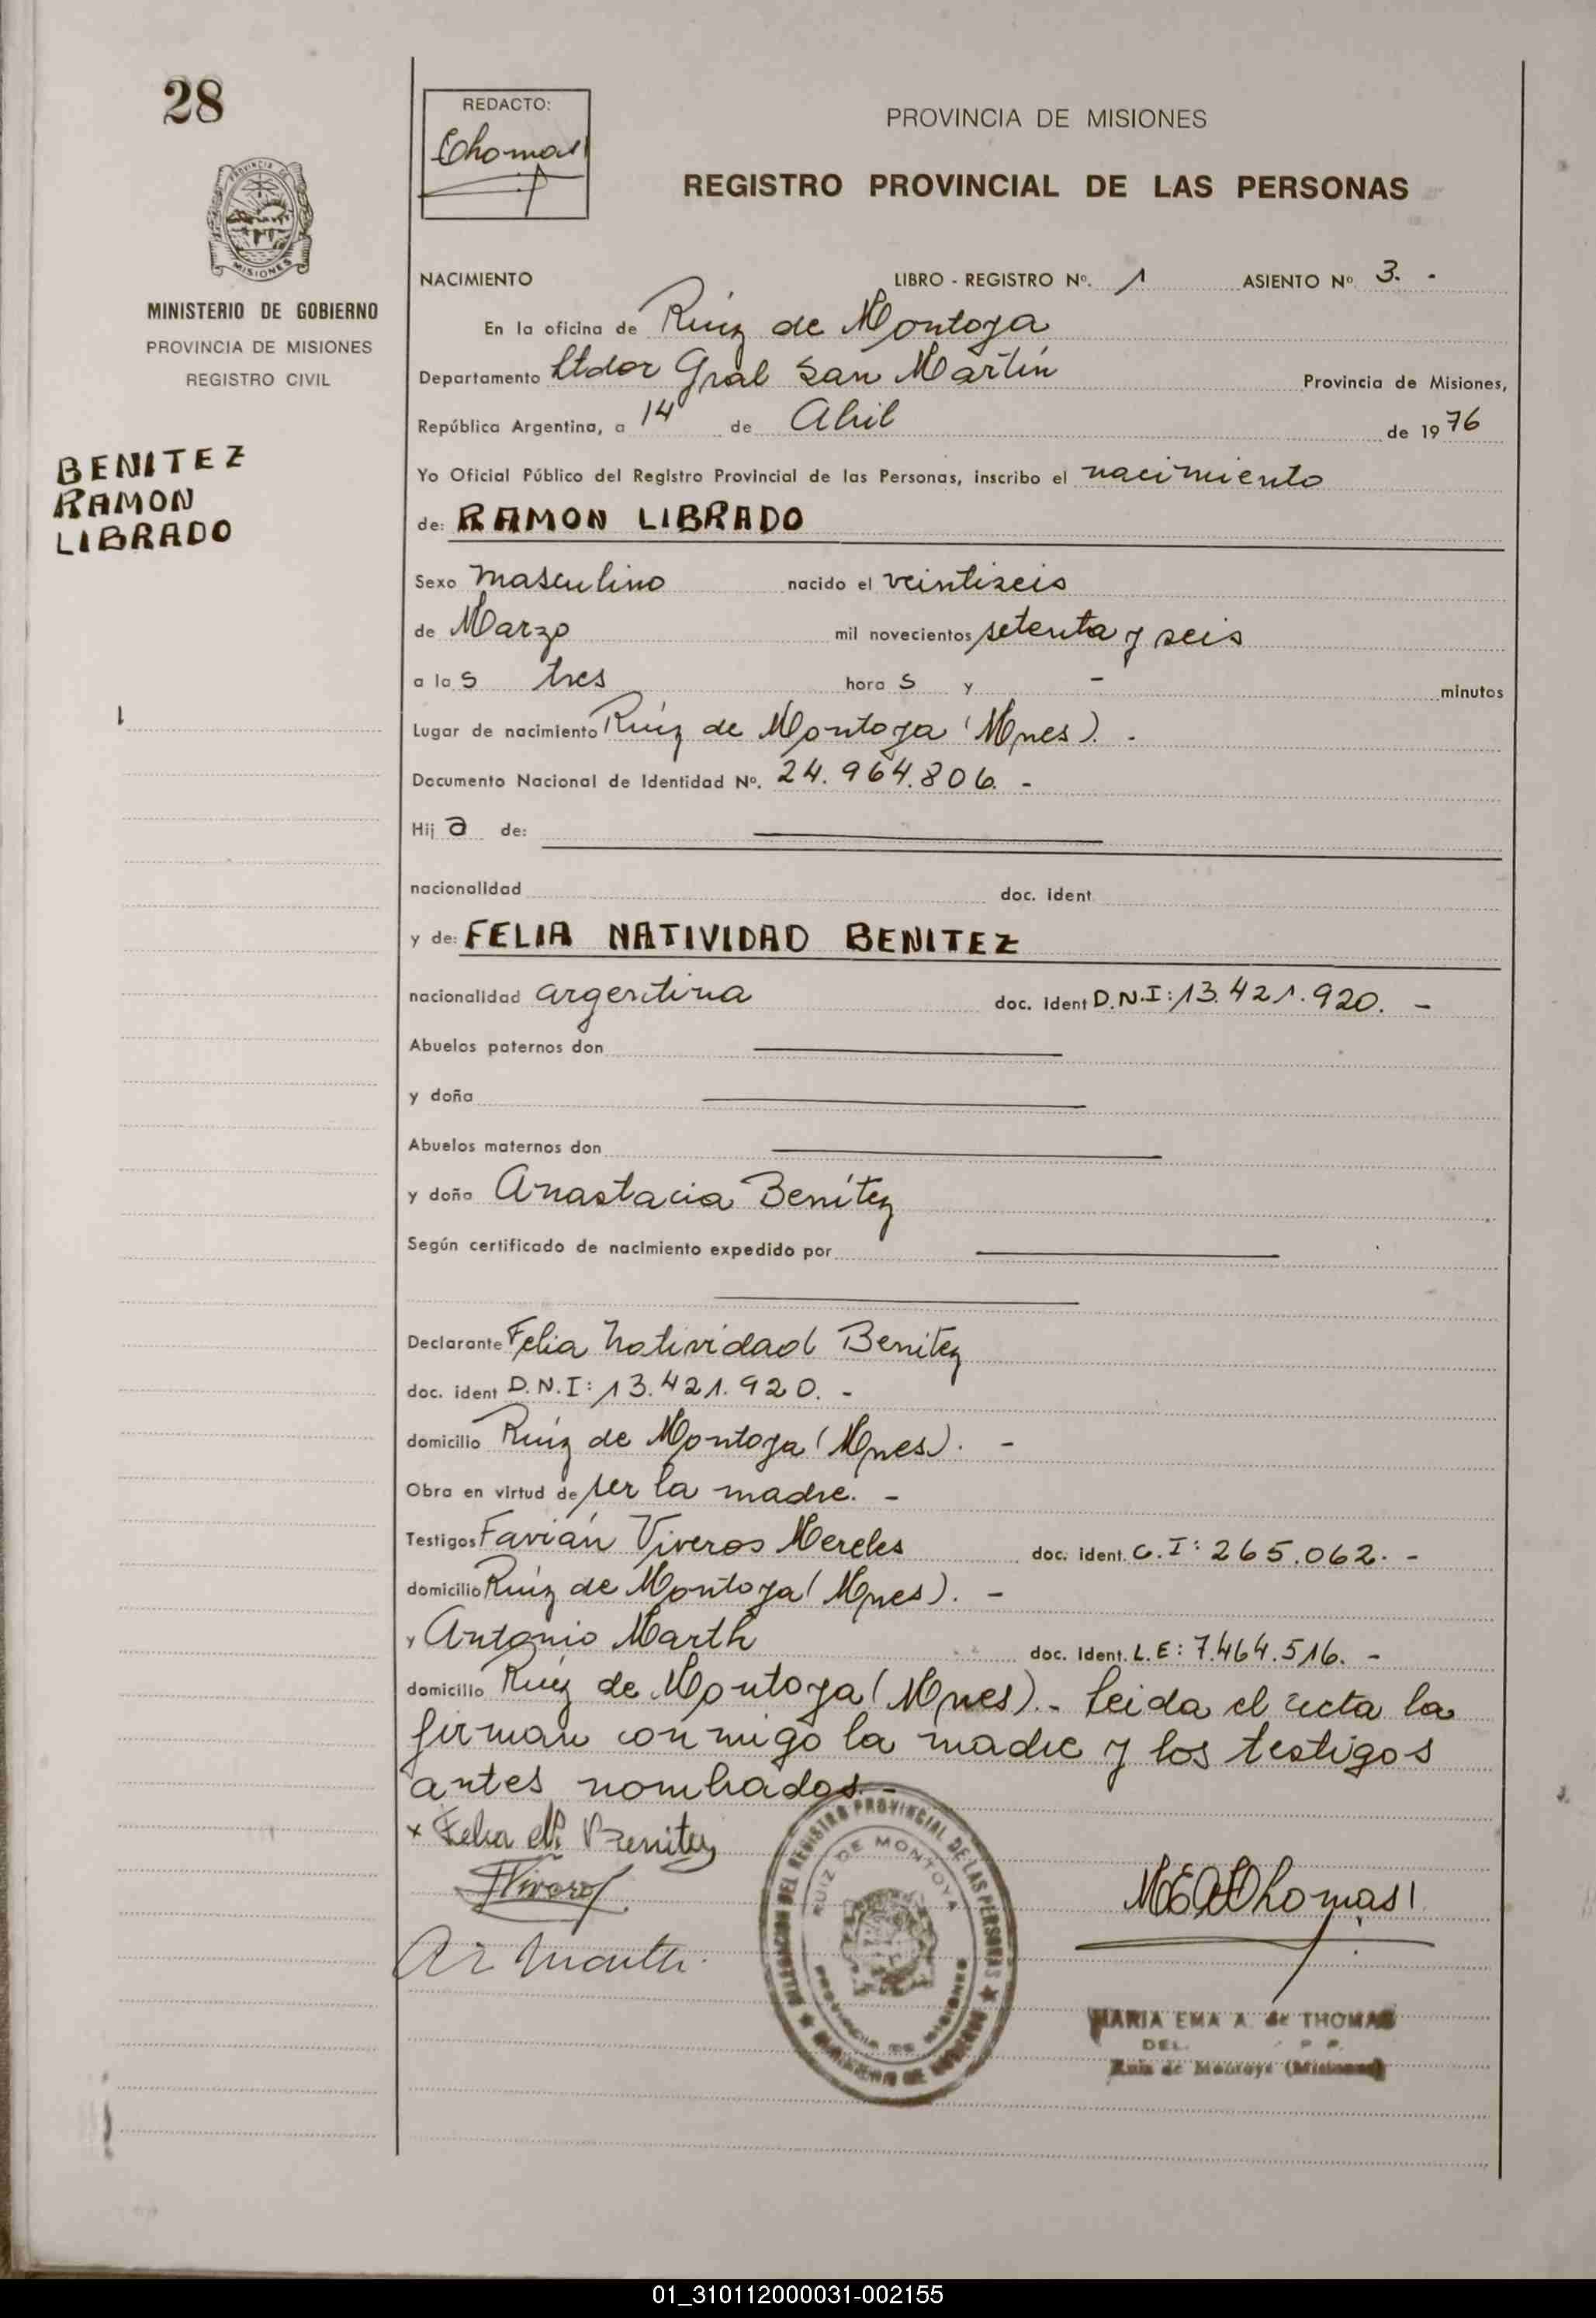 28
REDACTO:
Thomas
PROVINCIA DE MISIONES
REGISTRO PROVINCIAL DE LAS PERSONAS
PROVINCIA DE
MISIONES
MINISTERIO DE GOBIERNO
PROVINCIA DE MISIONES
REGISTRO CIVIL
BENITEZ
RAMON
LIBRADO
NACIMIENTO LIBRO - REGISTRO Nº. 1 ASIENTO Nº 3. -
En la oficina de Ruíz de Montoya
Departamento Ltdor Gral San Martín Provincia de Misiones,
República Argentina, a 14 de Abril de 1976
Yo Oficial Público del Registro Provincial de las Personas, inscribo el nacimiento
de: RAMON LIBRADO
Sexo masculino nacido el veintiseis
de Marzo mil novecientos setenta y seis
a las tres horas y - minutos
Lugar de nacimiento Ruíz de Montoya (Mnes). -
Documento Nacional de Identidad Nº. 24.964.806. -
Hij a de:
nacionalidad doc. ident.
y de: FELIA NATIVIDAD BENITEZ
nacionalidad argentina doc. ident D.N.I: 13.421.920. -
Abuelos paternos don
y doña
Abuelos maternos don
y doña Anastacia Benítez
Según certificado de nacimiento expedido por
Declarante Felia Natividad Benitez
doc. ident D.N.I: 13.421.920. -
domicilio Ruíz de Montoya (Mnes). -
Obra en virtud de ser la madre. -
Testigos Favián Viveros Mereles doc. ident. C.I: 265.062. -
domicilio Ruíz de Montoya (Mnes). -
y Antonio Marth doc. Ident. L.E: 7.464.516. -
domicilio Ruíz de Montoya (Mnes).- Leida el acta la
firman conmigo la madre y los testigos
antes nombrados.-
x Felia N. Benitez
FViveros
Marth
Thomas
DELEGACION DEL REGISTRO PROVINCIAL DE LAS PERSONAS
RUIZ DE MONTOYA
PROVINCIA DE MISIONES
MINISTERIO DE GOBIERNO
MARIA EMA A. de THOMAS
DEL. P. P.
Ruiz de Montoya (Misiones)
01_310112000031-002155